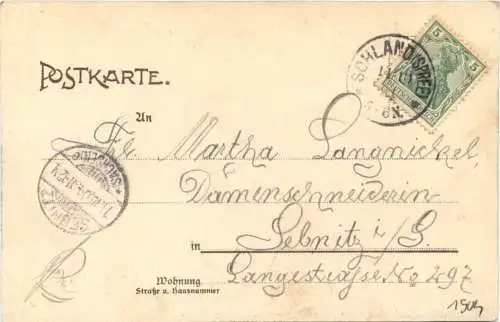 POSTKARTE.
SOHLAND (SPREE)
5
5-6N.
An
Frl. Martha Langnickel,
Damenschneiderin
in Sebnitz i/S.
Wohnung
Straße u. Hausnummer
Langestrasse No 297
1904